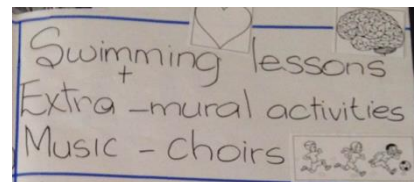 Swimming lessons
+
Extra-mural activities
Music - choirs